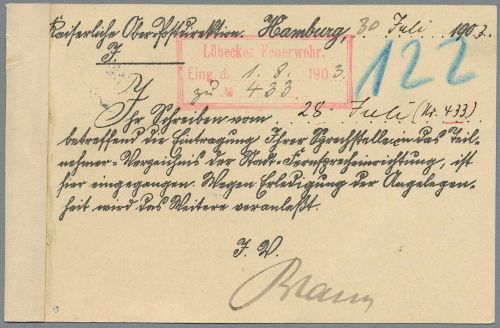 Kaiserliche Oberpostdirektion. Hamburg, 30 Juli 1903.
J.
Lübecker Feuerwehr.
Eing. d. 1. 8. 1903.
zu № 433.
122
Ihr Schreiben vom 28 Juli (Nr. 433)
betreffend die Eintragung Ihrer Sprechstelle in das Teil-
nehmer-Verzeichnis der Stadt-Fernsprecheinrichtung, ist
hier eingegangen. Wegen Erledigung der Angelegen-
heit wird das Weitere veranlaßt.
J. V.
Braun